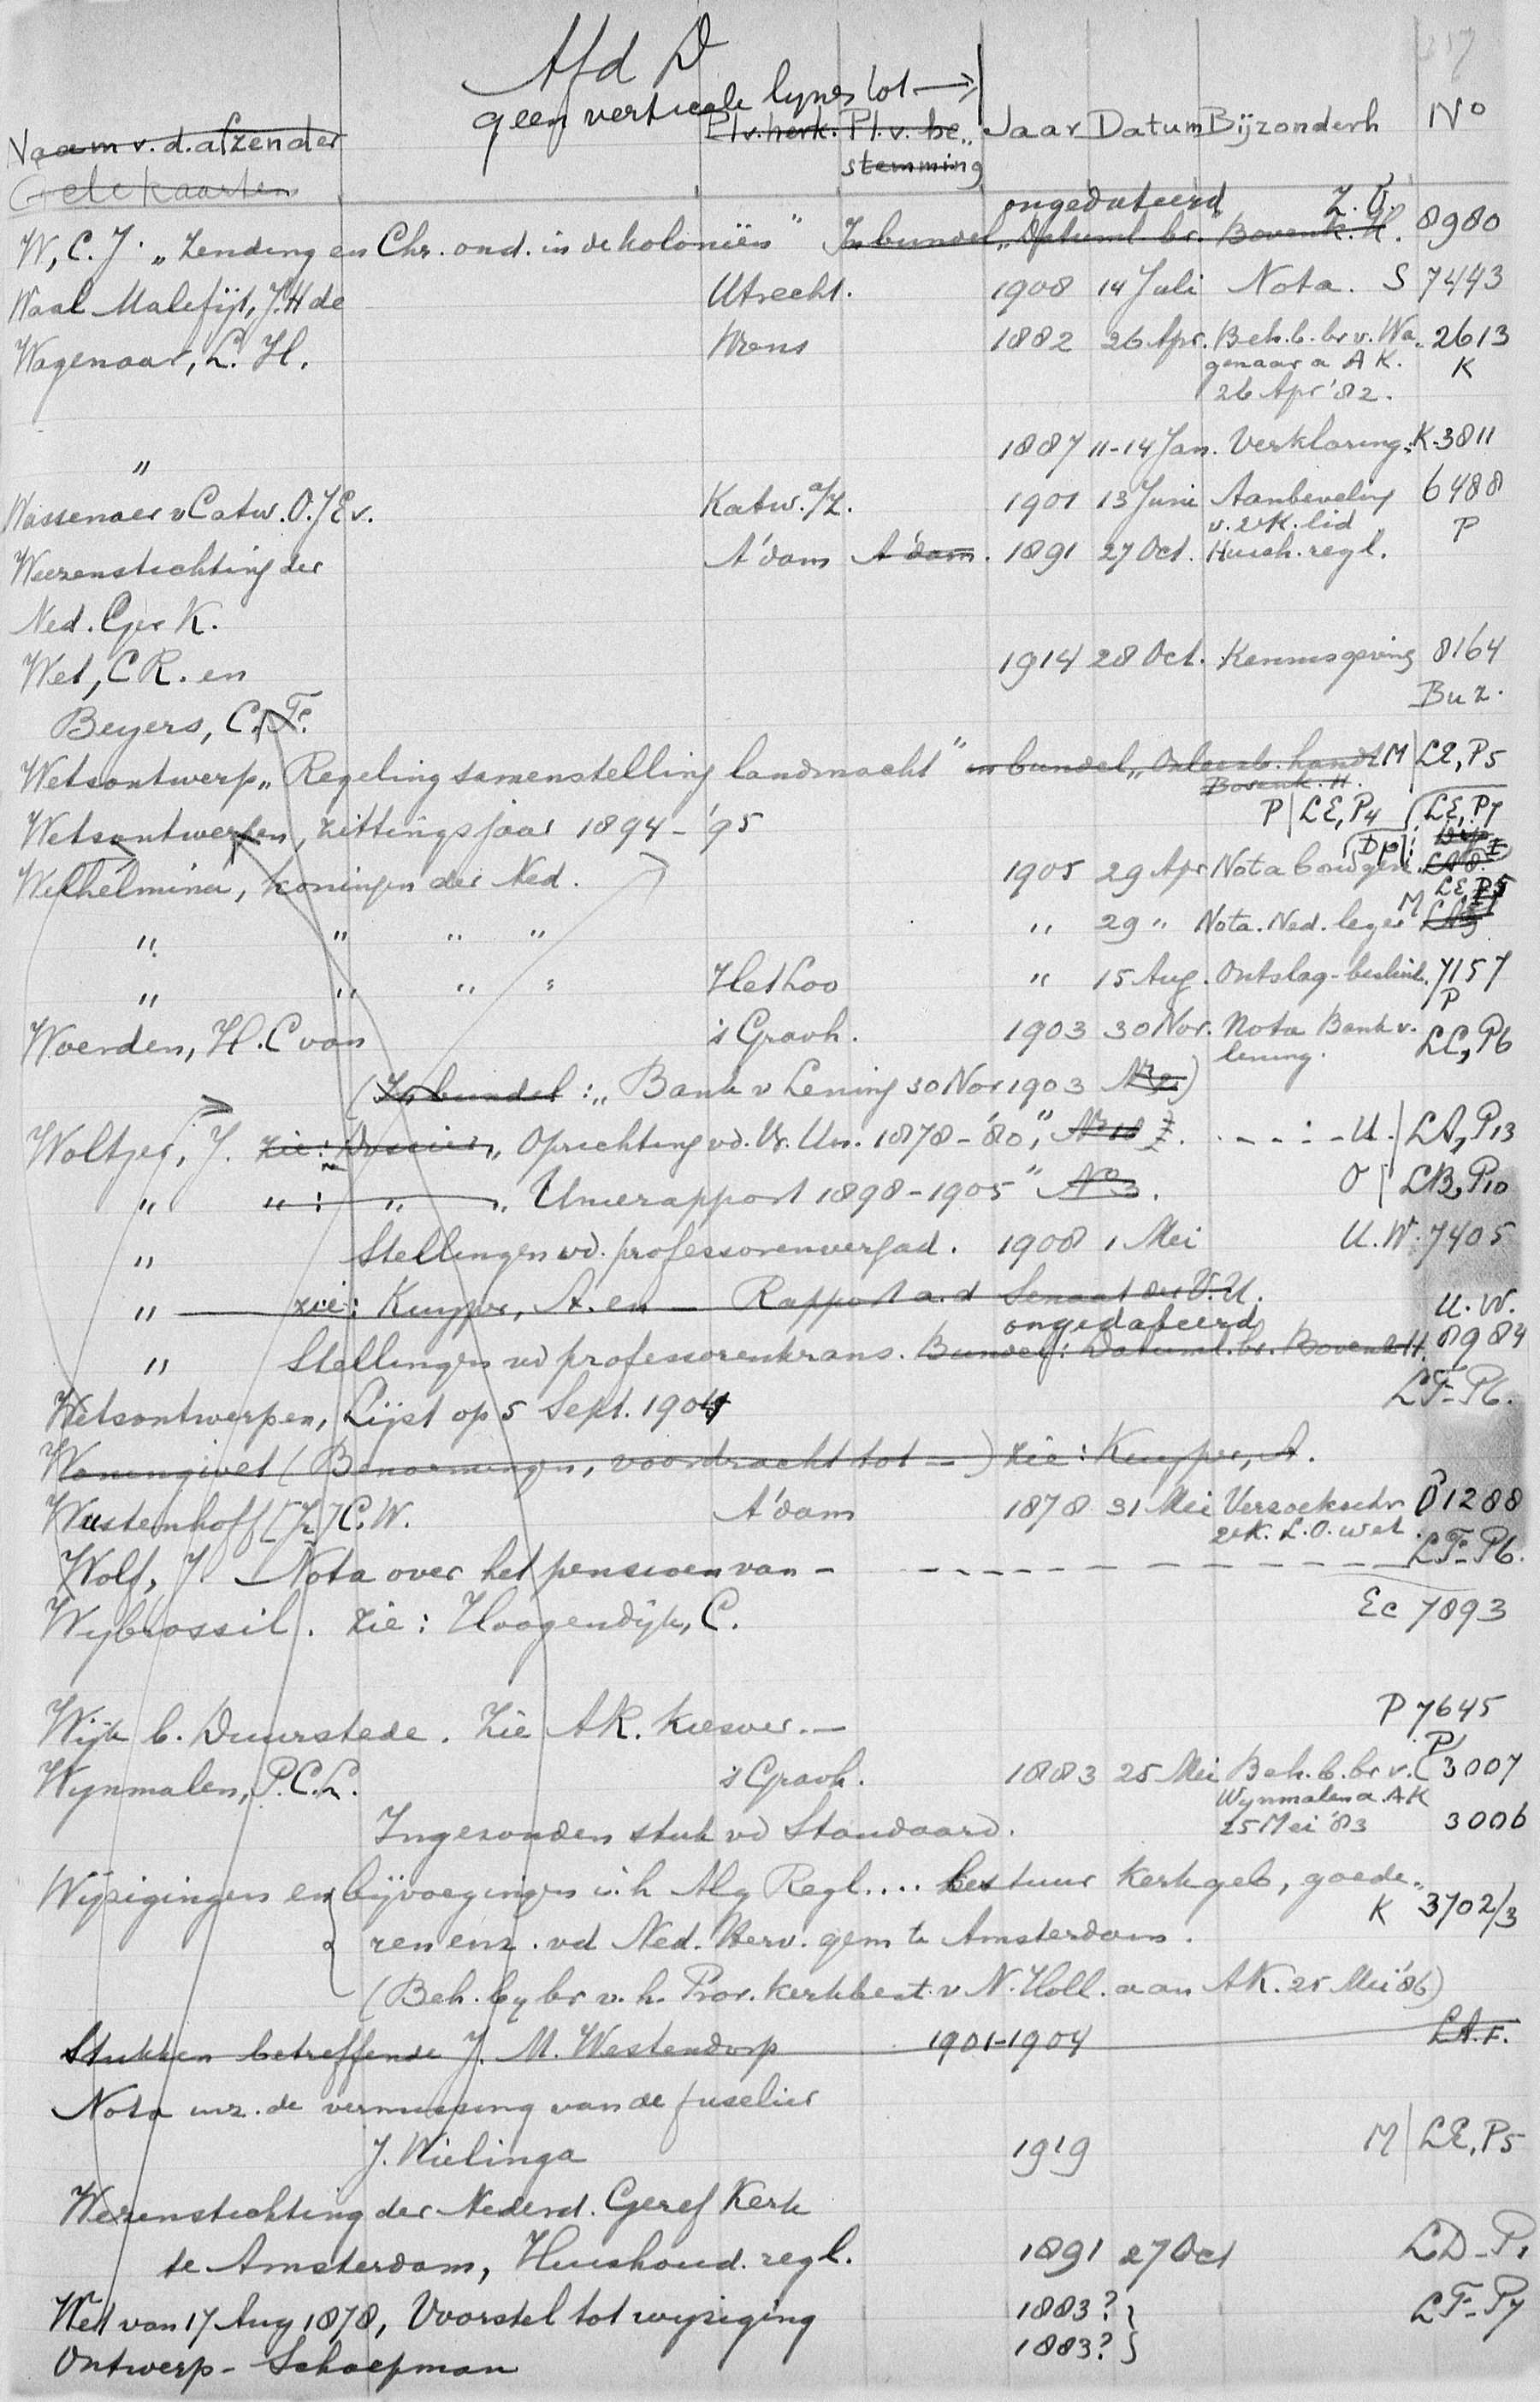 Afd D
geen verticale lynen tot →
Naam v. d. afzender Pl.v.herk. Pl.v.be„ Jaar Datum Bijzonderh No
stemming
Gele kaarten
ongedateerd Z.O.
W, C. J. „Zending en Chr. ond. in de koloniën" In bundel „Datuml. br. Bovenk. H. 8980
Waal Malefijt, J.H de Utrecht. 1908 14 Juli Nota. S 7443
Wagenaar, L. H. Wons 1882 26 Apr. Beh. b. br v. Wa„ 2613
genaar a A K. K
26 Apr '82.
" 1887 11-14 Jan. Verklaring. K-3811
Wassenaer v Catw. O. J E v. Katw. a/Z. 1901 13 Juni Aanbeveling 6488
v. 2e K. lid P
Weezenstichting der A'dam A'dam. 1891 27 Oct. Huish. regl.
Ned. Ger K.
Wet, C R. en 1914 28 Oct. Kennisgeving 8164
Bu Z.
Beyers, C. F.
Wetsontwerp „Regeling samenstelling landmacht" in bundel „Onleesb. handt M LE, P5
Bovenk. H.
P LE, P4 LE, P7
Wetsontwerpen, zittingsjaar 1894-'95
Dp
Wilhelmina, koningin der Ned. 1905 29 Apr Nota bondgen.
M LE, P5
" " " " " 29 " Nota. Ned. leger
" " " " Het Loo " 15 Aug. Ontslag-besluit. 7157
P
Woerden, H. C van 's Gravh. 1903 30 Nov. Nota Bank v. LC, P6
lening.
(In bundel: „Bank v Lening 30 Nov 1903 No 2)
Woltjer, J. zie: Dossier „Oprichting vd. Vr. Un. 1878-'80", No 18 U. LA, P13
" " : " „Unierapport 1898-1905" No 3. O LB, P10
" Stellingen vd. professorenvergad. 1908 1 Mei U.W. 7405
" zie: Kuyper, A. en — Rapport a.d Senaat der V.U. U.W.
ongedateerd
" Stellingen vd professorenkrans. Bundel: Datuml. br. Bovenk H. 8984
Wetsontwerpen, Lijst op 5 Sept. 1904 LF-P6.
Woningwet (Benoemingen, voordracht tot —) zie: Kuyper, A.
Wustenhoff [Jr] C. W. A'dam 1878 31 Mei Verzoekschr O 1288
2e K. L.O. wet.
Wolf, J. Nota over het pensioen van - LF-P6.
Wybrossil. zie: Hoogendijk, C. Ec 7893
Wijk b. Duurstede. Zie AR. Kiesver. — P 7645
P
Wijnmalen, P.C.L. 's Gravh. 1883 25 Mei Beh. b. br v. 3007
Wynmalen a. AK
25 Mei '83 3006
Ingezonden stuk vd Standaard.
Wijzigingen en bijvoegingen i. h Alg Regl.... bestuur kerkgeb, goede„
K 3702/3
ren enz. vd Ned. Herv. gem te Amsterdam.
(Beh. by br v. h. Prov. kerkbest. v N. Holl. aan AK. 25 Mei '86)
Stukken betreffende J. M. Westendorp 1901-1904 LA. F.
Nota inz. de vermissing van de fuselier
J. Wielinga 1919 M LE, P5
Wezenstichting der Nederd. Geref Kerk
te Amsterdam, Huishoud. regl. 1891 27 Oct LD-P1
Wet van 17 Aug 1878, Voorstel tot wijziging 1883? } LF-P7
Ontwerp- Schaepman 1883? }